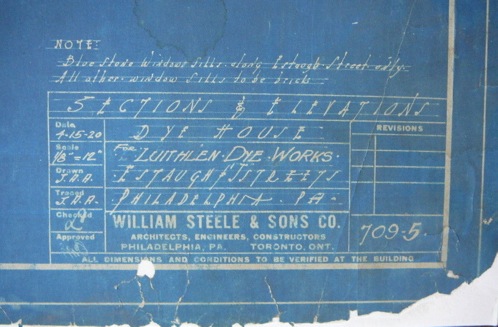 NOTE:
Blue stone window sills along Estaugh Street only.
All other window sills to be brick.
SECTIONS & ELEVATIONS
Date
4-15-20
DYE HOUSE
REVISIONS
Scale
For LUITHLEN DYE WORKS.
Drawn
J.A.A.
ESTAUGH STREETS
Traced
J.A.A.
PHILADELPHIA PA.
Checked
WILLIAM STEELE & SONS CO.
ARCHITECTS, ENGINEERS, CONSTRUCTORS
709-5.
Approved
PHILADELPHIA, PA. TORONTO, ONT.
ALL DIMENSIONS AND CONDITIONS TO BE VERIFIED AT THE BUILDING